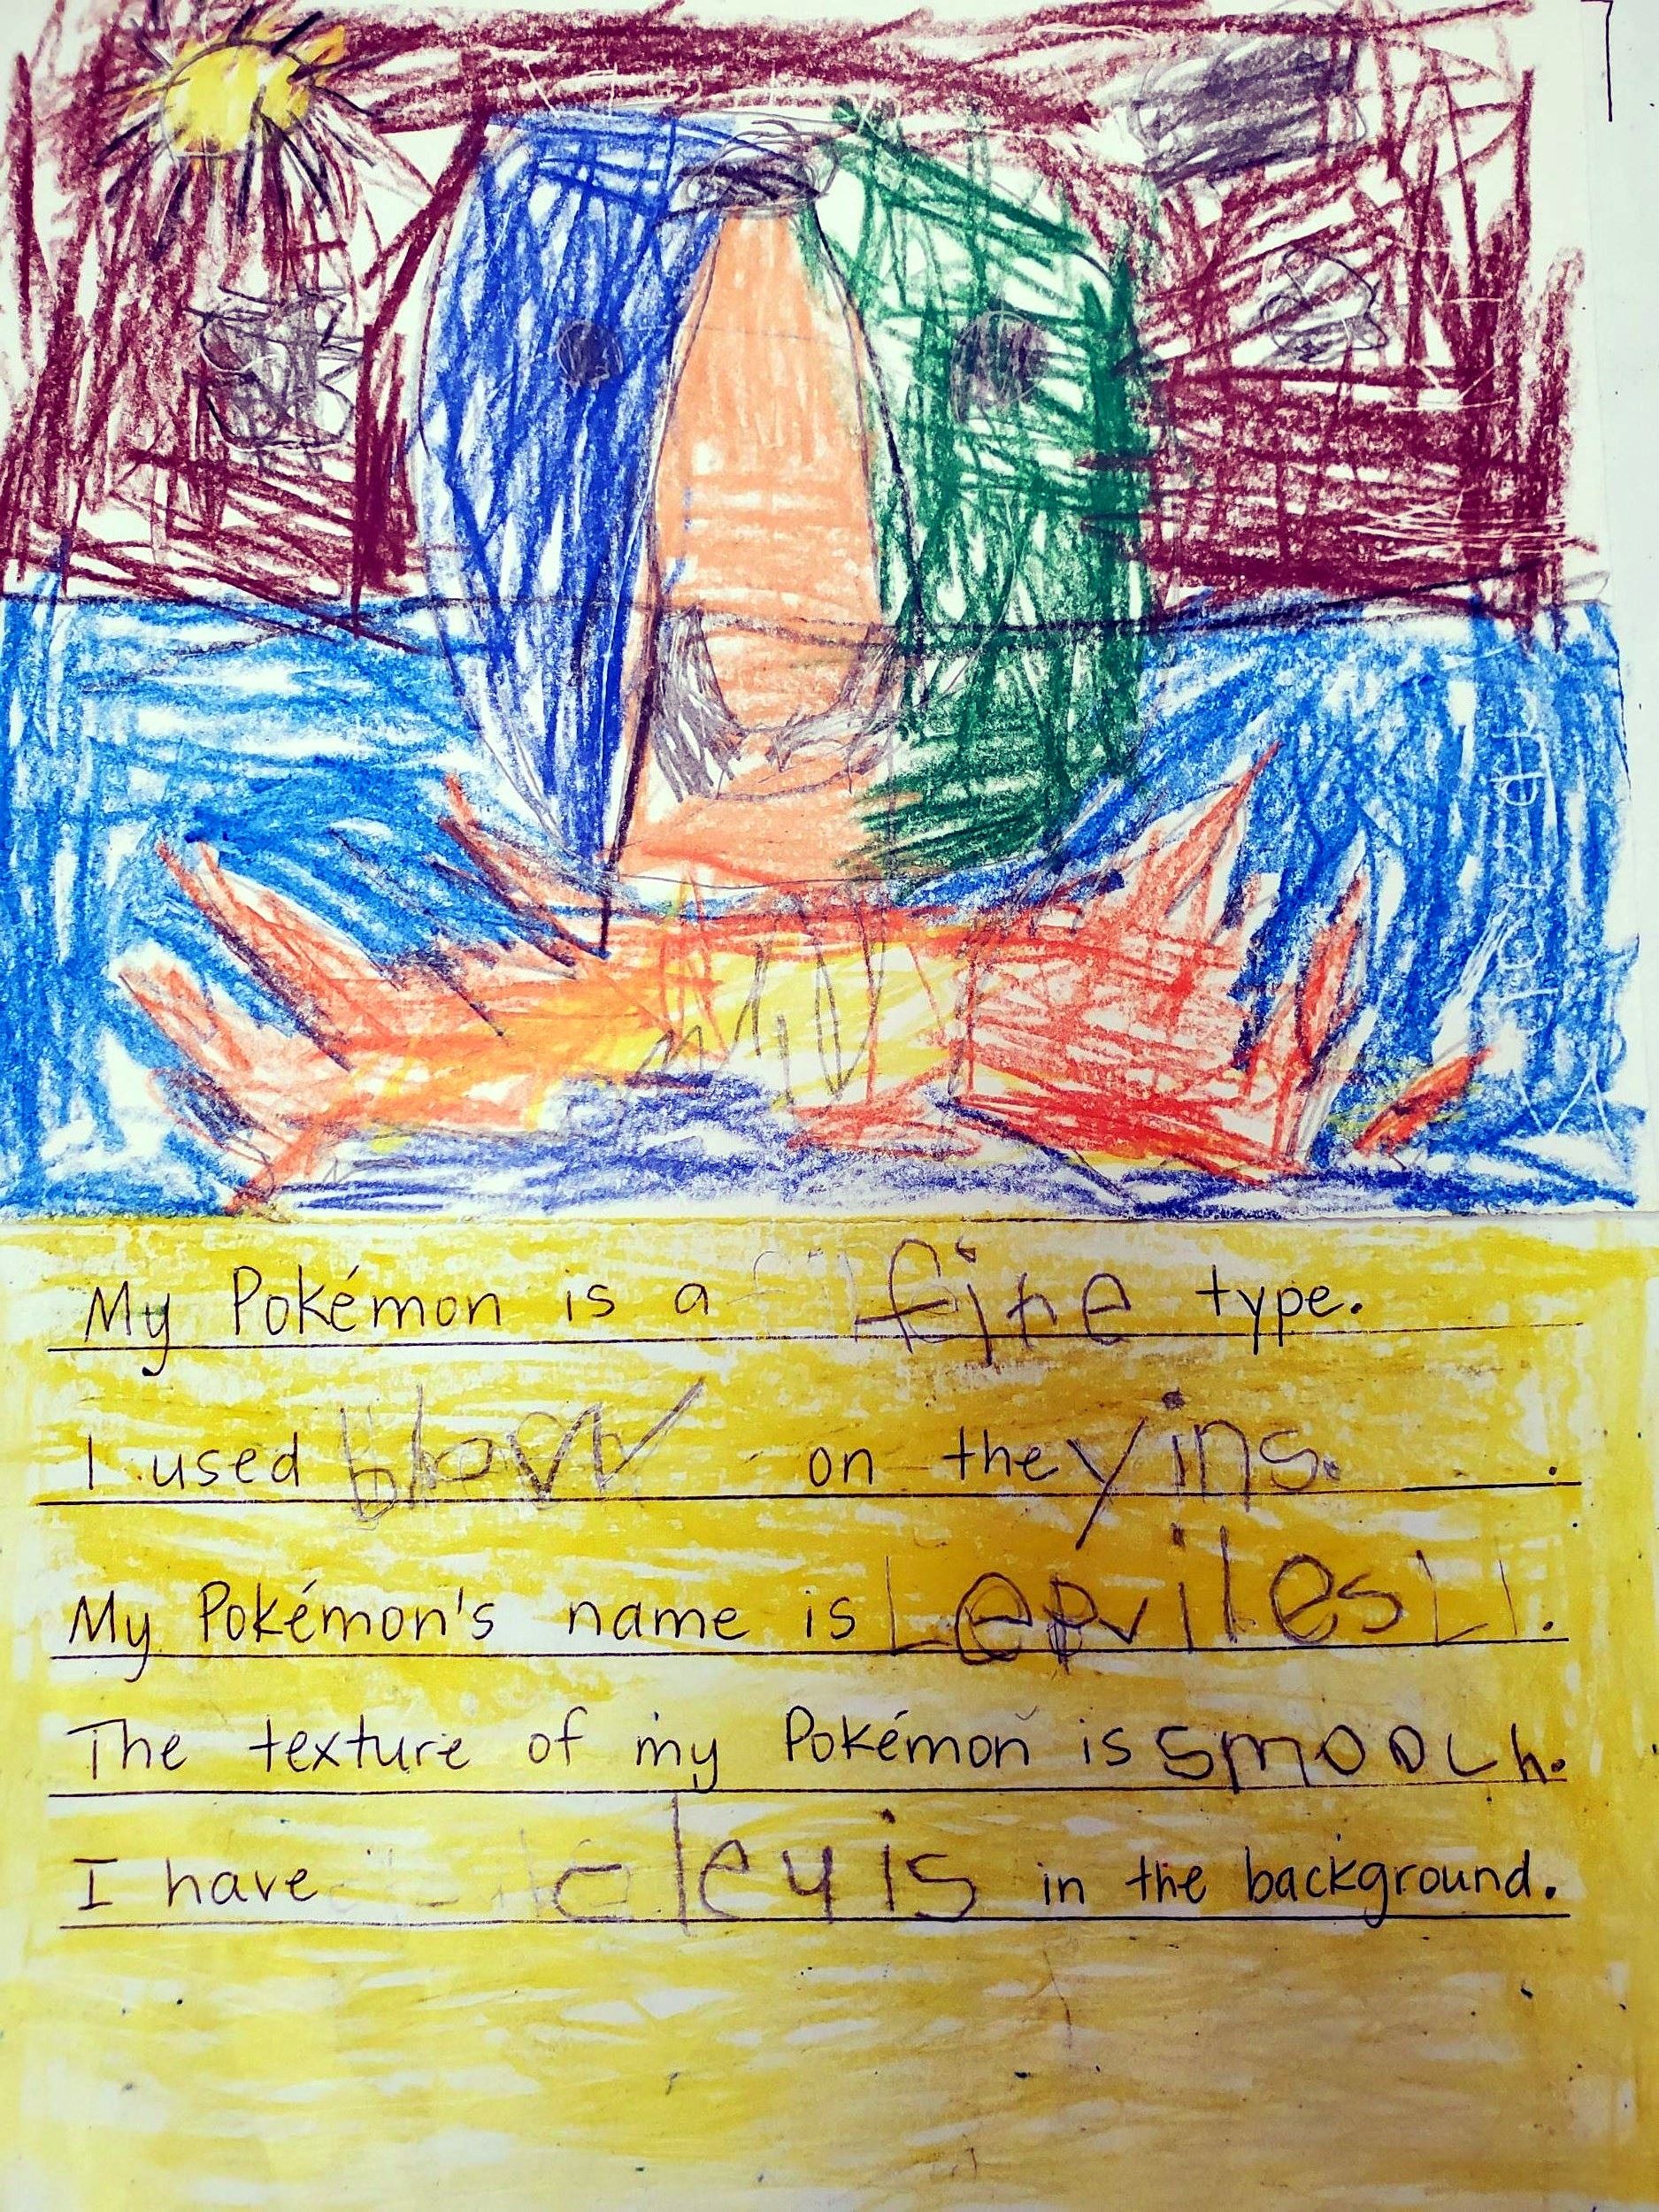 My Pokémon is a fire type.
I used on the yins.
My Pokémon's name is Lepvilesll.
The texture of my Pokémon is smooth.
I have cleyis in the background.